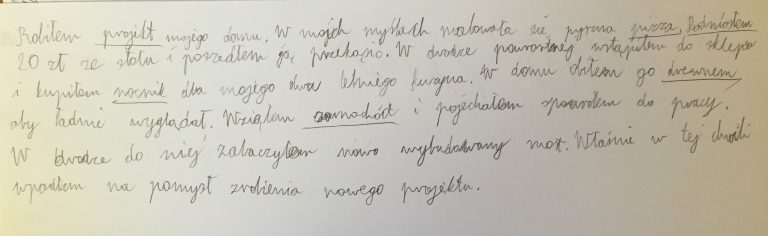 Robiłem projekt mojego domu. W moich myślach malowała się pyszna pizza. Podniosłem
20 zł ze stołu i poszedłem ją przekąsić. W drodze powrotnej wstąpiłem do sklepu
i kupiłem nocnik dla mojego dwu letniego kuzyna. W domu obiłem go drewnem,
aby ładnie wyglądał. Wziąłem samochód i pojechałem spowrotem do pracy.
W drodze do niej zobaczyłem nowo wybudowany most. Właśnie w tej chwili
wpadłem na pomysł zrobienia nowego projektu.